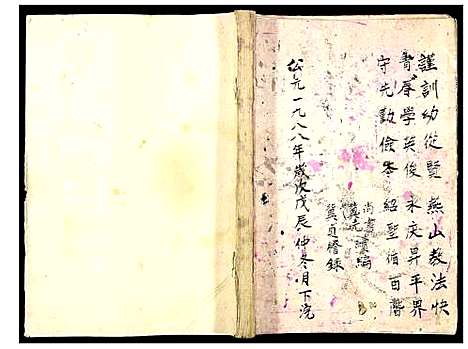 謹訓幼從賢燕山教法快
書辱學英俊永慶昇平界
守先勤儉本紹聖循百階
尚書 編
冀貞謄錄
公元一九八八年歲次戊辰仲冬月下浣